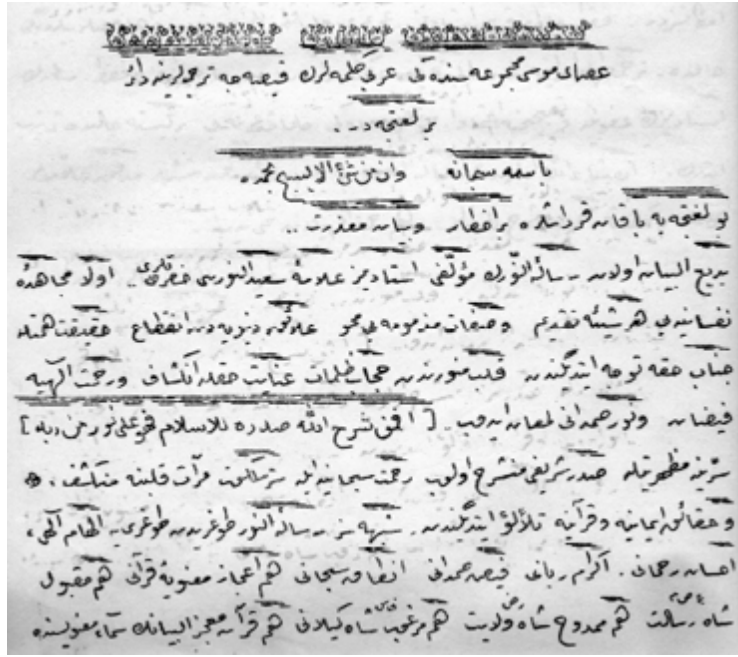 عصای موسی مجموعه سنده کی عربی کلمه لرك قیصه جه ترجمه لرینه دائر
بر لغتچه در..
باسمه سبحانه وان من شیٔ الا یسبح بحمده
بو لغتچه یه باقان قرداشلره بر اخطار وبیان معذرت ..
بدیع البیان اولان رسالۀ النورك مؤلفی استادمز علامۀ سعید النورسی حضرتلری. اولا مجاهدۀ
نفسانیه یی هر شیئه تقدیم وصفات مذمومه یی محو علائق دنیویه دن انقطاع حقیقت همتله
جناب حقه توجه ایتدیگندن قلب منورندن حجاب ظلمات عنایت حقله انکشاف ورحمت الهیه
فیضان ونور صمدانی لمعان ایدوب. [ افمن شرح الله صدره للاسلام فهو علی نور من ربه ]
سرینه مظهریتله صدر شریفی منشرح اولوب رحمت سبحانیه ایله سر ملکوت مرآت قلبنه منکشف،
و حقائق ایمانیه وقرآنیه تلألؤ ایتدیگندن. شبهه سز رسالۀ النور طوغریدن طوغری یه الهام الهی،
احسان رحمانی. اکرام ربانی فیض صمدانی انطاق سبحانی هم اعجاز معنویۀ قرآنی هم مقبول
شاه رسالت هم ممدوح شاه ولایت هم مرغب شاه کیلانی هم قرآن معجز البیانك سماء معنویسنده